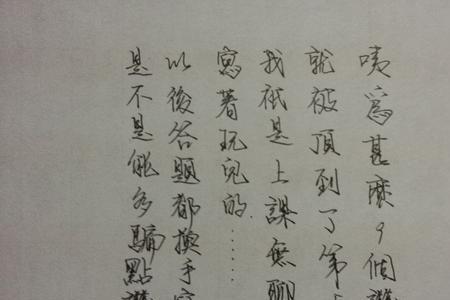 咦為甚麼9個讚
就被頂到了第
我衹是上課無聊
寫著玩兒的……
以後答題都換手寫
是不是能多騙點讚